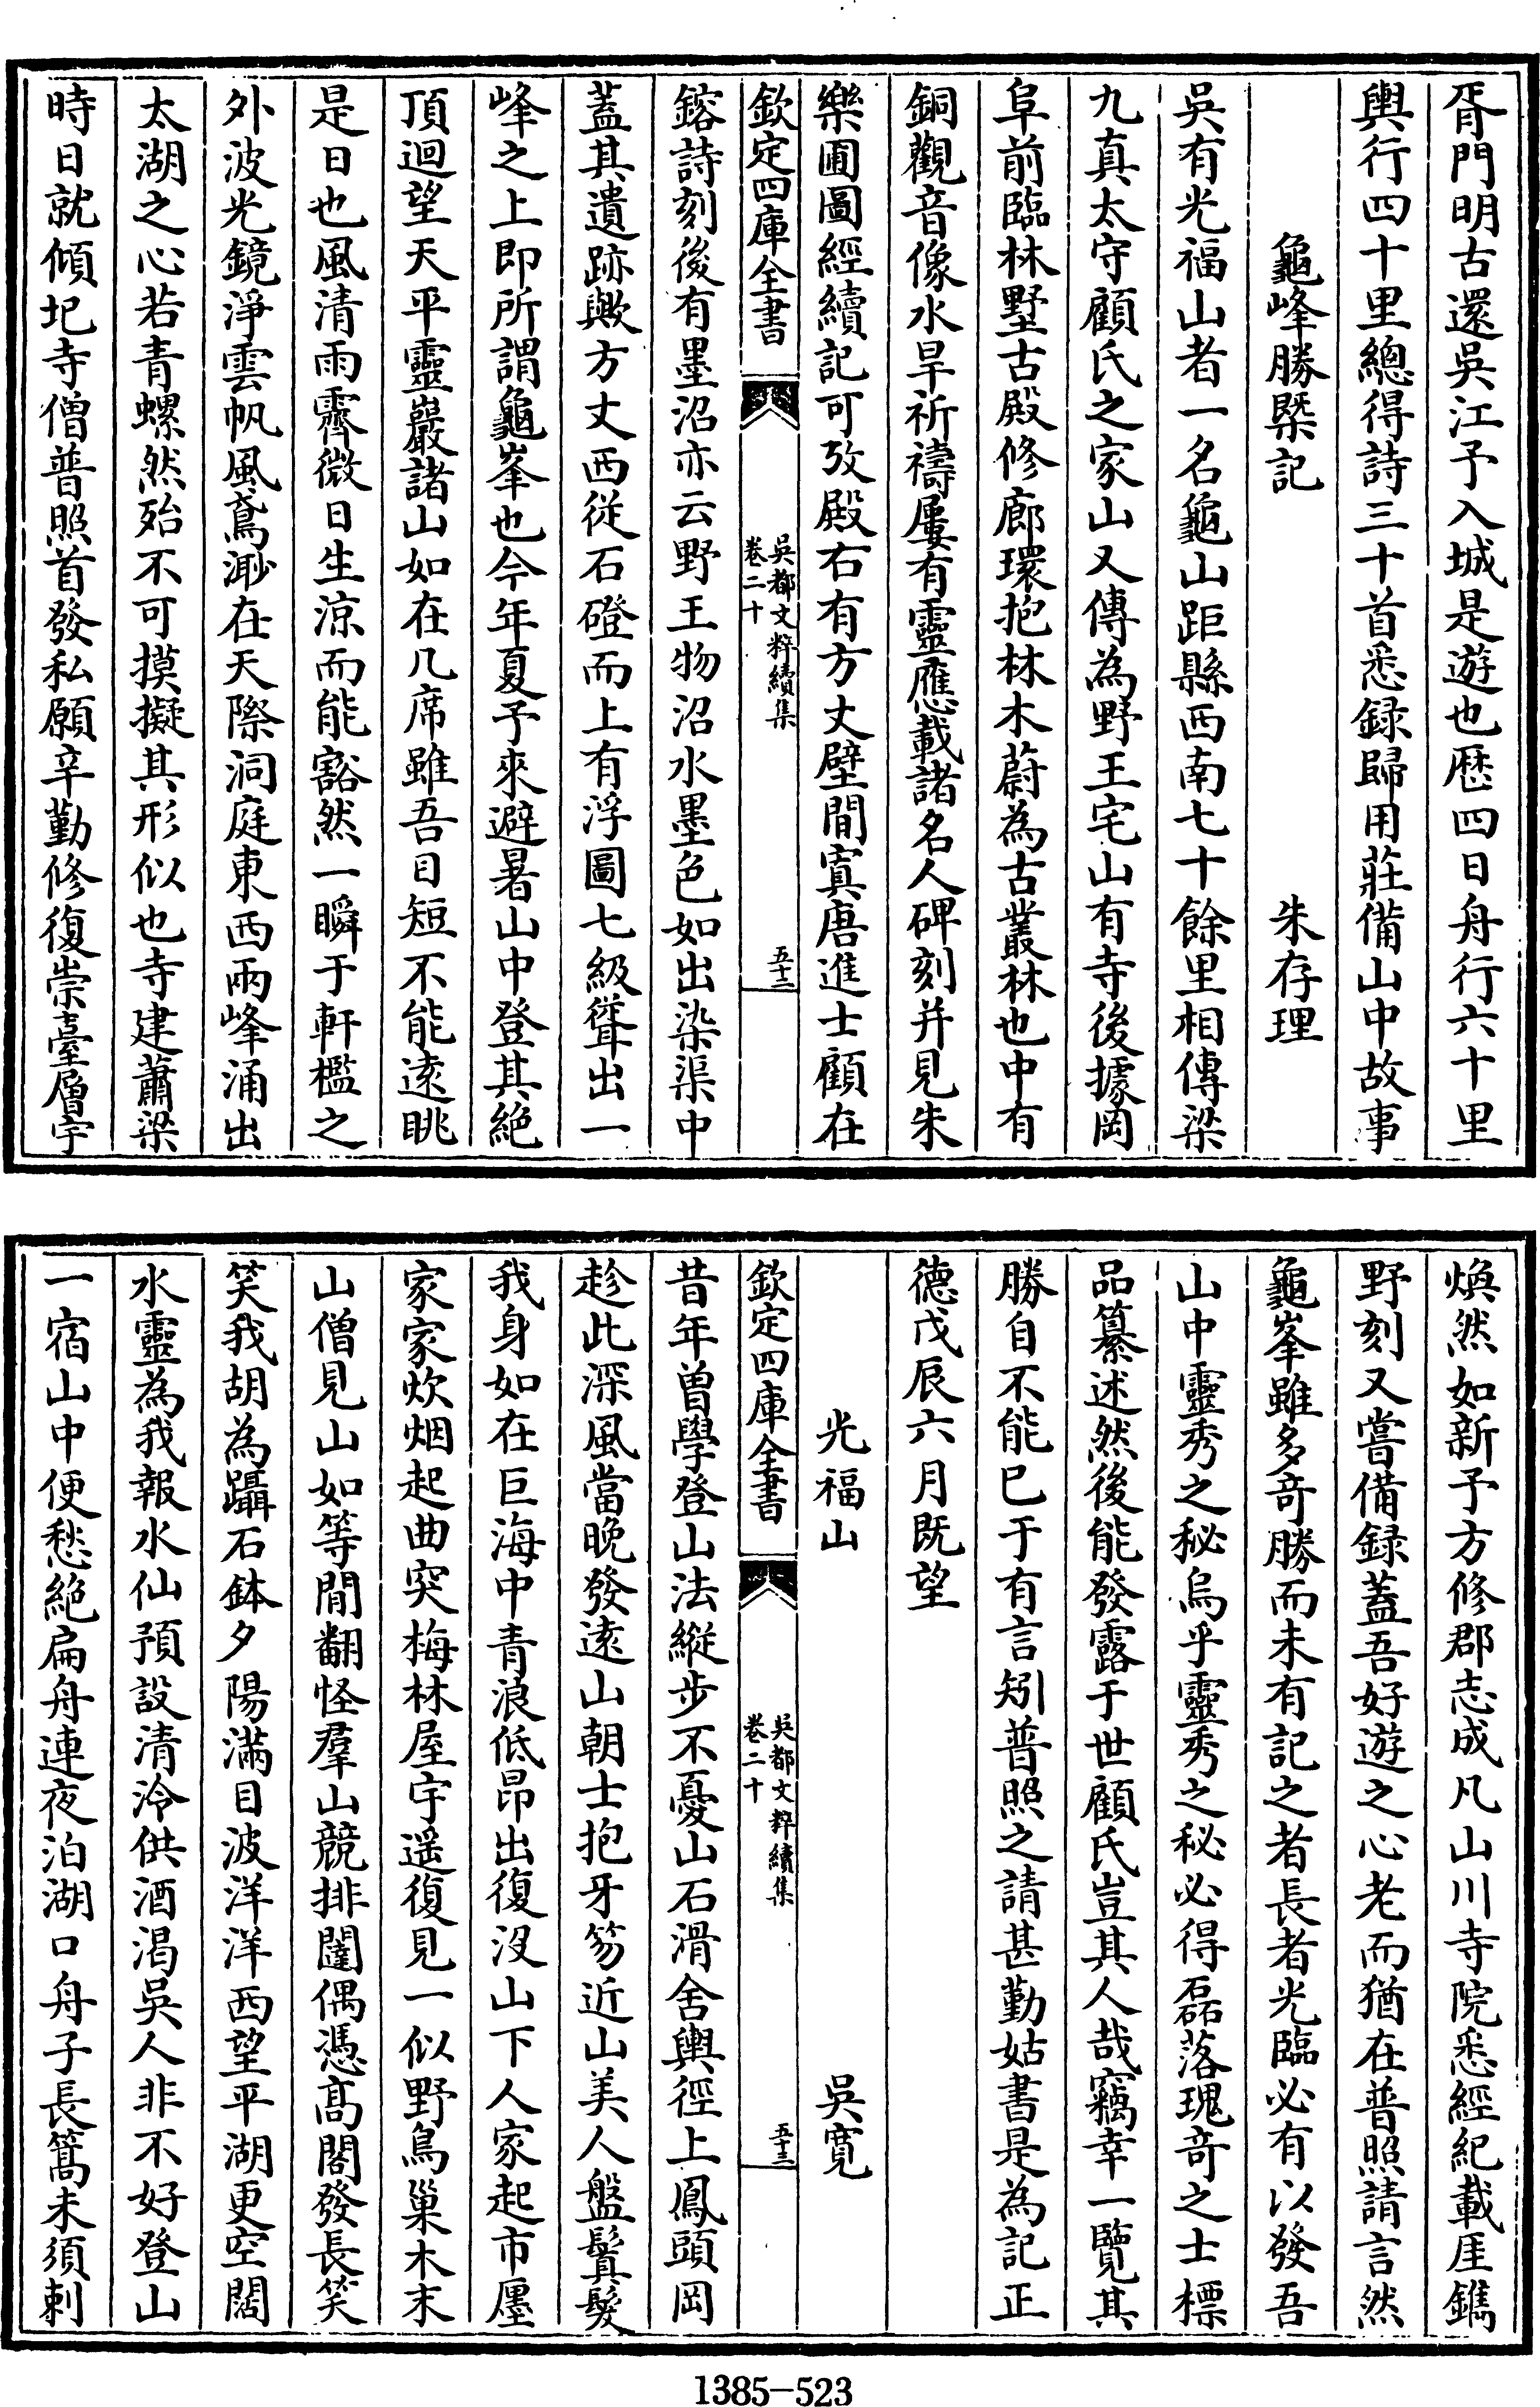 胥門明古還吳江予入城是遊也歷四日舟行六十里
輿行四十里總得詩三十首悉録歸用莊備山中故事
龜峰勝槩記　朱存理
吳有光福山者一名龜山距縣西南七十餘里相傳梁
九真太守顧氏之家山又傳為野王宅山有寺後據岡
阜前臨林墅古殿修廊環抱林木蔚為古叢林也中有
銅觀音像水旱祈禱屢有靈應載諸名人碑刻并見朱
樂圃圖經續記可攷殿右有方丈壁間寘唐進士顧在
欽定四庫全書　吳都文粹續集　卷二十　五十二
鎔詩刻後有墨沼亦云野王物沼水墨色如出染渠中
蓋其遺跡歟方丈西從石磴而上有浮圖七級聳出一
峰之上即所謂龜峯也今年夏予來避暑山中登其絶
頂迴望天平靈巖諸山如在几席雖吾目短不能遠眺
是日也風清雨霽微日生涼而能豁然一瞬于軒檻之
外波光鏡淨雲帆風鳶渺在天際洞庭東西兩峰涌出
太湖之心若青螺然殆不可摸擬其形似也寺建蕭梁
時日就傾圮寺僧普照首發私願辛勤修復崇臺層宇
煥然如新予方修郡志成凡山川寺院悉經紀載厓鐫
野刻又嘗備録蓋吾好遊之心老而猶在普照請言然
龜峯雖多奇勝而未有記之者長者光臨必有以發吾
山中靈秀之秘烏乎靈秀之秘必得磊落瑰奇之士標
品纂述然後能發露于世顧氏豈其人哉竊幸一覽其
勝自不能已于有言矧普照之請甚勤姑書是為記正
德戊辰六月既望
光福山　吳寬
欽定四庫全書　吳都文粹續集　卷二十　五十三
昔年曽學登山法縱步不憂山石滑舍輿徑上鳳頭岡
趁此深風當晚發遠山朝士抱牙笏近山美人盤鬒髮
我身如在巨海中青浪低昂出復没山下人家起市廛
家家炊烟起曲突梅林屋宇遥復見一似野鳥巢木末
山僧見山如等閒翻怪羣山競排闥偶憑髙閣發長笑
笑我胡為躡石鉢夕陽滿目波洋洋西望平湖更空闊
水靈為我報水仙預設清泠供酒渴吳人非不好登山
一宿山中便愁絶扁舟連夜泊湖口舟子長篙未須刺
1385-523